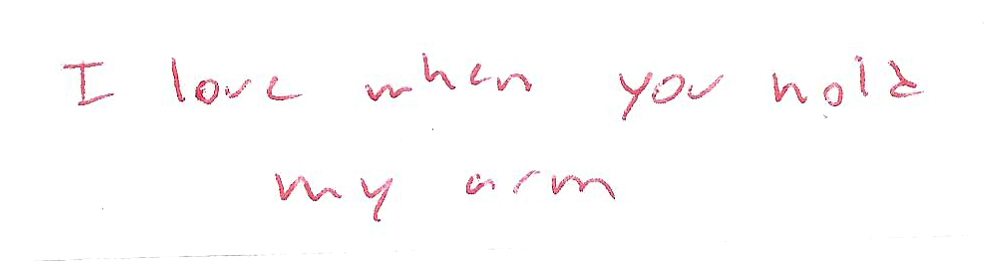 I love when you hold
my arm